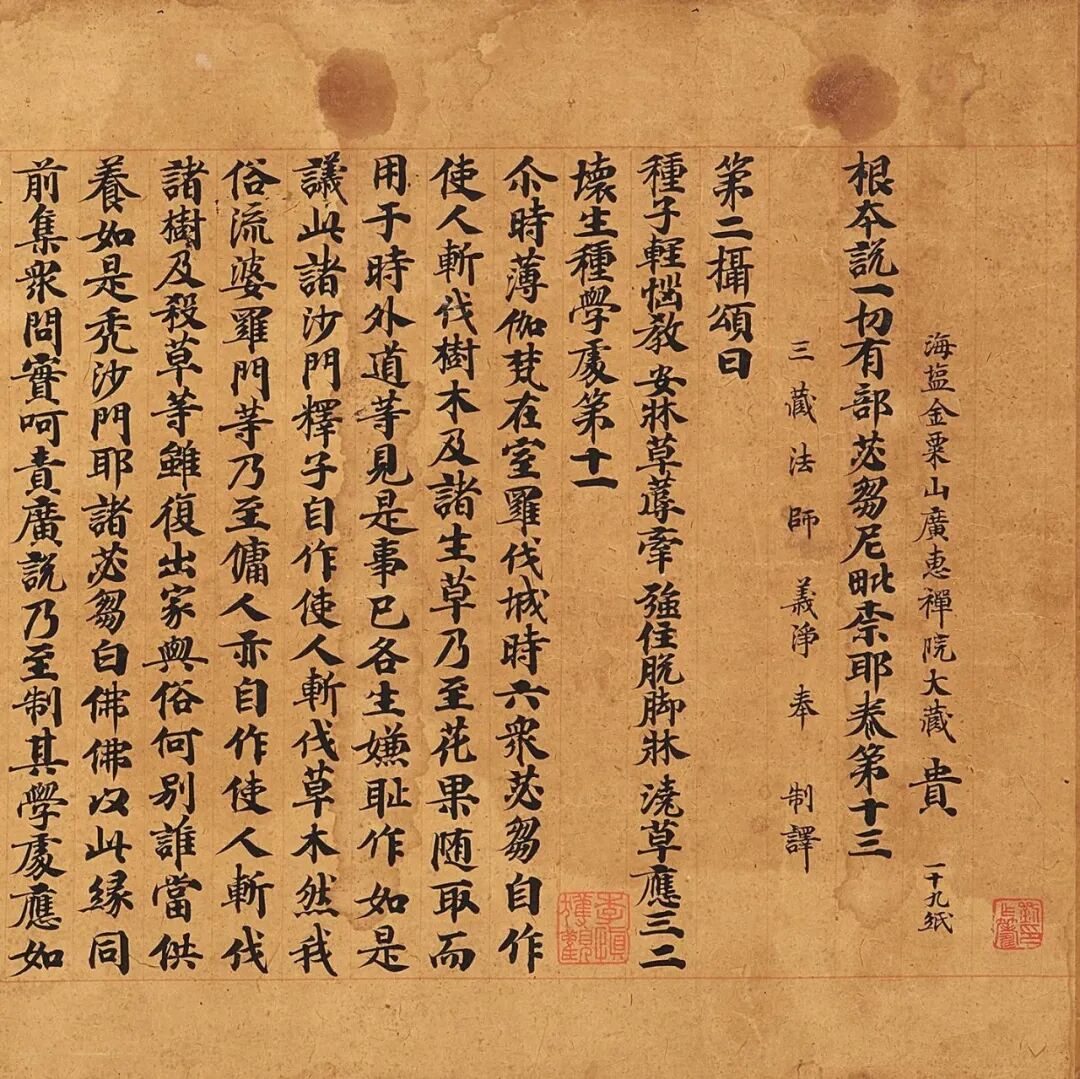 海塩金粟山廣惠禪院大藏 貴 一十九紙
根本説一切有部苾芻尼毗柰耶卷第十三
三藏法師 義淨奉 制譯
第二攝頌曰
種子輕惱教 安牀草蓐牽 強住脱脚牀 澆草應三二
壞生種學處第十一
尒時薄伽梵在室羅伐城時六衆苾芻自作
使人斬伐樹木及諸生草乃至花果随取而
用于時外道等見是事已各生嫌恥作如是
議此諸沙門釋子自作使人斬伐草木然我
俗流婆羅門等乃至傭人亦自作使人斬伐
諸樹及殺草等雖復出家與俗何別誰當供
養如是禿沙門耶諸苾芻白佛佛以此緣同
前集衆問實呵責廣説乃至制其學處應如